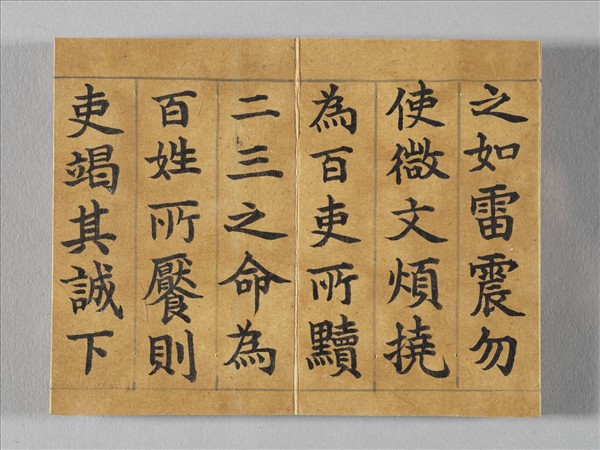 之如雷震勿
使微文煩撓
為百吏所黷
二三之命為
百姓所饜則
吏竭其誠下